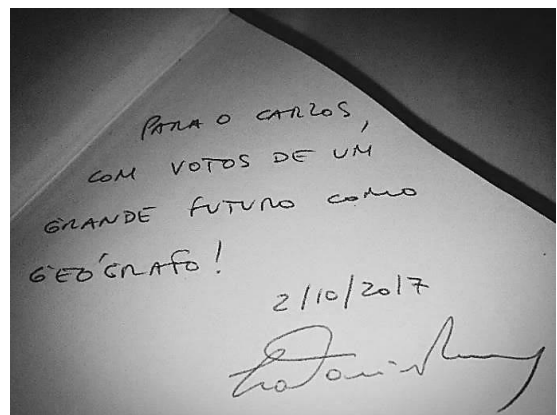 PARA O CARLOS,
COM VOTOS DE UM
GRANDE FUTURO COMO
GEÓGRAFO!
2/10/2017